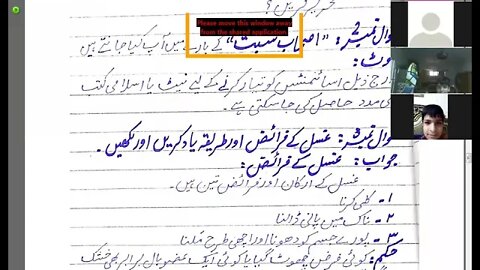 سوال نمبر 2: "اصحاب سبت" کے بارے میں آپ کیا جانتے ہیں
Please move this window away
from the shared application
نوٹ:
درج ذیل اسائنمنٹس کو تیار کرنے کے لیے نیٹ یا اسلامی کتب
کی مدد حاصل کی جا سکتی ہے۔
سوال نمبر 3: غسل کے فرائض اور طریقہ یاد کریں اور لکھیں۔
جواب: غسل کے فرائض:
غسل کے ارکان اور فرائض تین ہیں۔
۱- کلی کرنا
۲- ناک میں پانی ڈالنا
۳- پورے جسم کو دھونا اور اچھی طرح ملنا
حکم: کوئی فرض چھوٹ گیا یا کوئی ایک عضو بال برابر بھی خشک